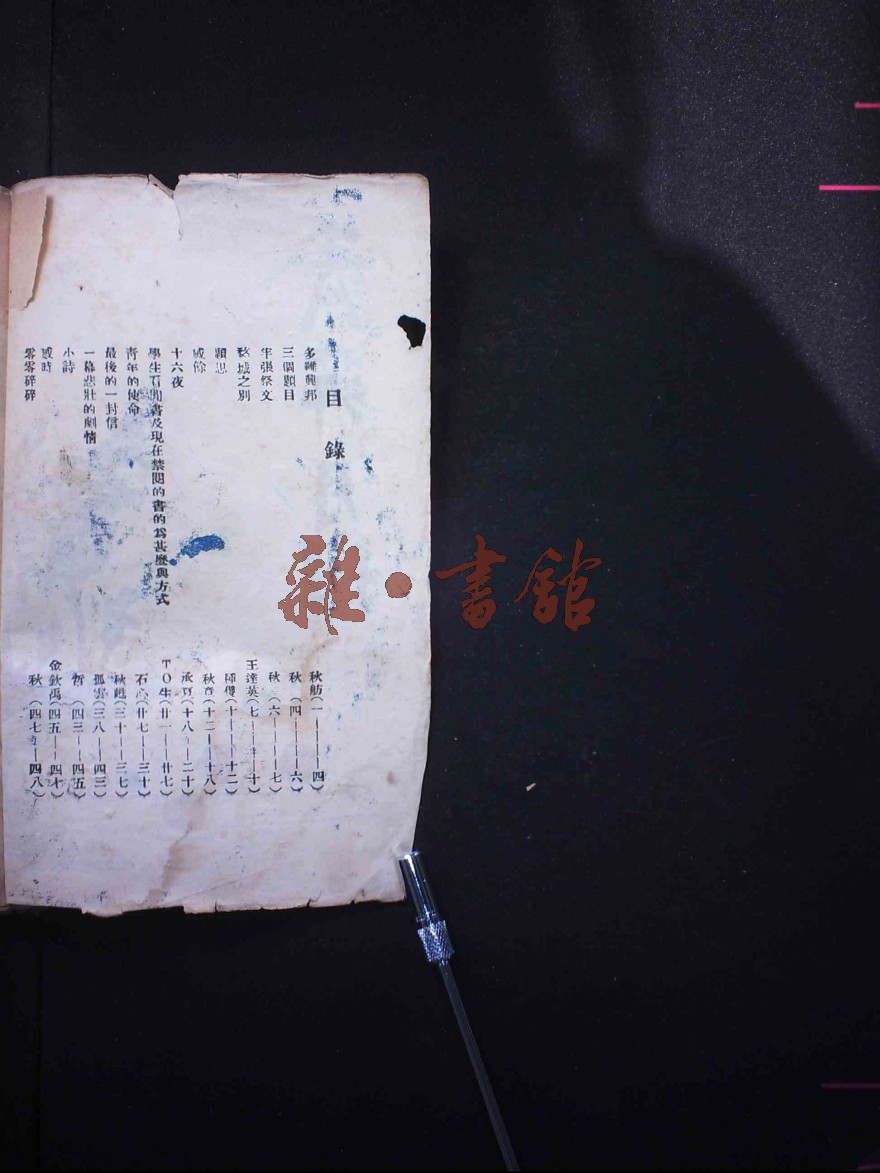 目錄
多難興邦
三個題目
牢張祭文
愁城之別
題思
感餘
十六夜
學生看閒書及現在禁閱的書的爲甚麼與方式
青年的使命
最後的一封信
一幕悲壯的劇情
小詩
感時
零零碎碎
秋舫（一————四）
秋（四————六）
秋（六———七）
王達英（七——十）
師傻（十——十二）
秋（十二—十八）
承夏（十八—二十）
TO生（廿一—廿七）
石（廿七—三十）
秋甦（三十—三七）
孤雲（三八—四三）
哲（四三—四五）
金欽禹（四五—四七）
秋（四七—四八）
雜·書館